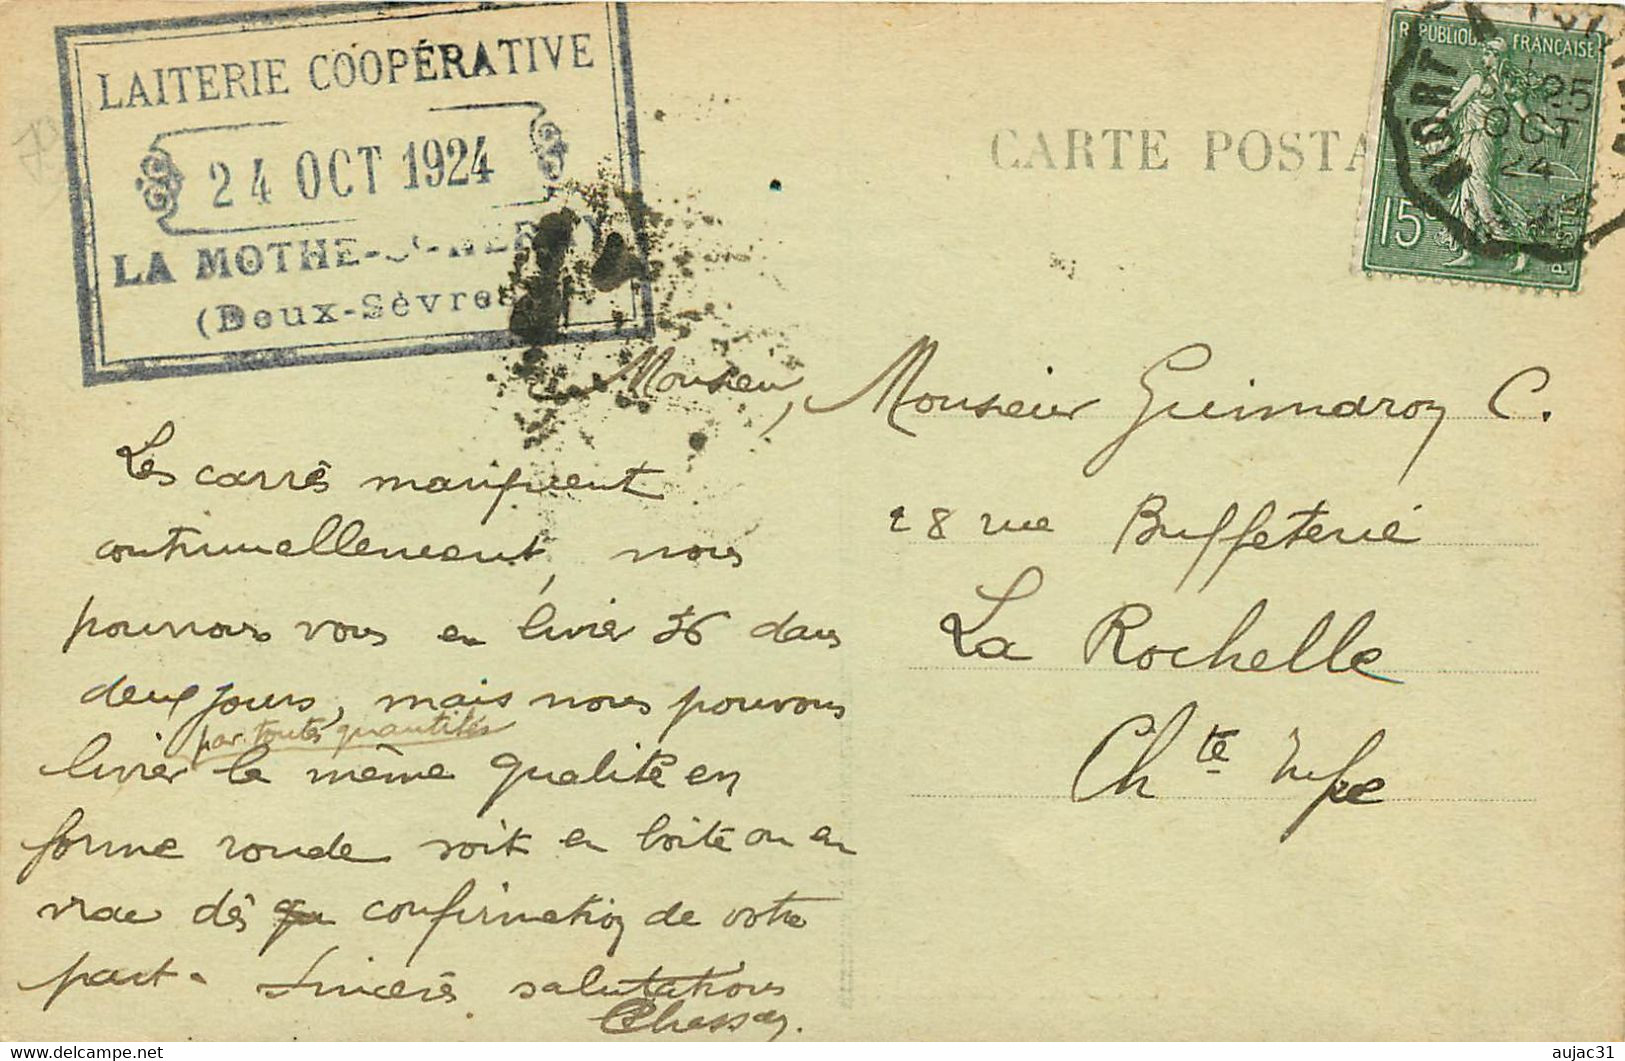 LAITERIE COOPÉRATIVE
24 OCT 1924
LA MOTHE-
(Deux-Sèvres
CARTE POSTA
REPUBLIQUE FRANÇAISE
15c
POSTES
NIORT
25
OCT
24
Monsieur,
Les carrés manquent
continuellement, nous
pourrons vous en livrer 36 dans
deux jours, mais nous pouvons
par toutes quantités
livrer la même qualité en
forme ronde soit en boite ou en
vrac dès confirmation de votre
part. Sincères salutations
Monsieur C.
28 rue Buffeterie
La Rochelle
Chte Infre
aujac31